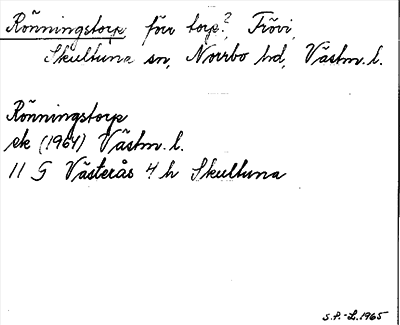 Rönningstorp förr torp?, Frövi,
Skultuna sn, Norrbo hd, Västm. l.
Rönningstorp
ek (1964) Västm. l.
11 G Västerås 4 h Skultuna
S.P.-L. 1965